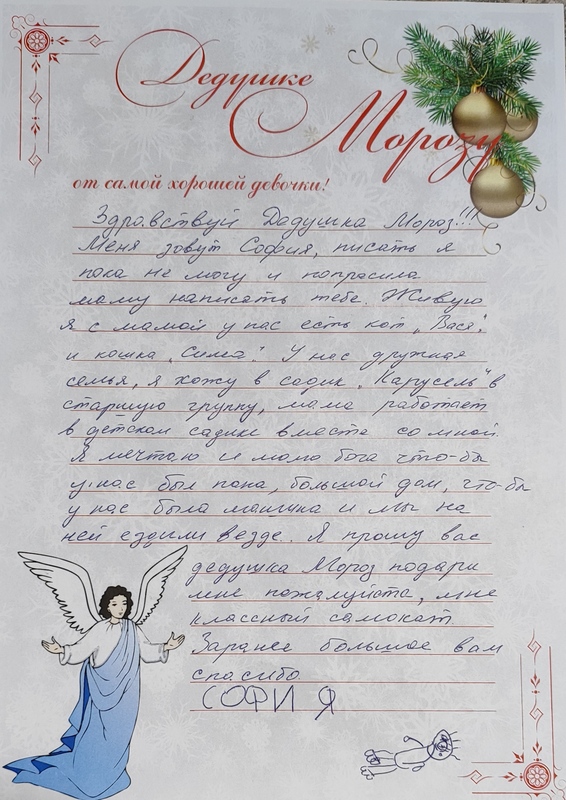 Дедушке
Морозу
от самой хорошей девочки!
Здравствуй Дедушка Мороз!!!
Меня зовут София, писать я
пока не могу и попросила
маму написать тебе. Живую
я с мамой у нас есть кот „Вася",
и кошка „Сима". У нас дружная
семья, я хожу в садик „Карусель" в
старшую группу, мама работает
в детском садике вместе со мной.
Я мечтаю и молю бога что-бы
у нас был папа, большой дом, что-бы
у нас была машина и мы на
ней ездили везде. Я прошу вас
дедушка Мороз подари
мне пожалуйста, мне
классный самокат.
Заранее большое вам
спасибо.
СОФИЯ